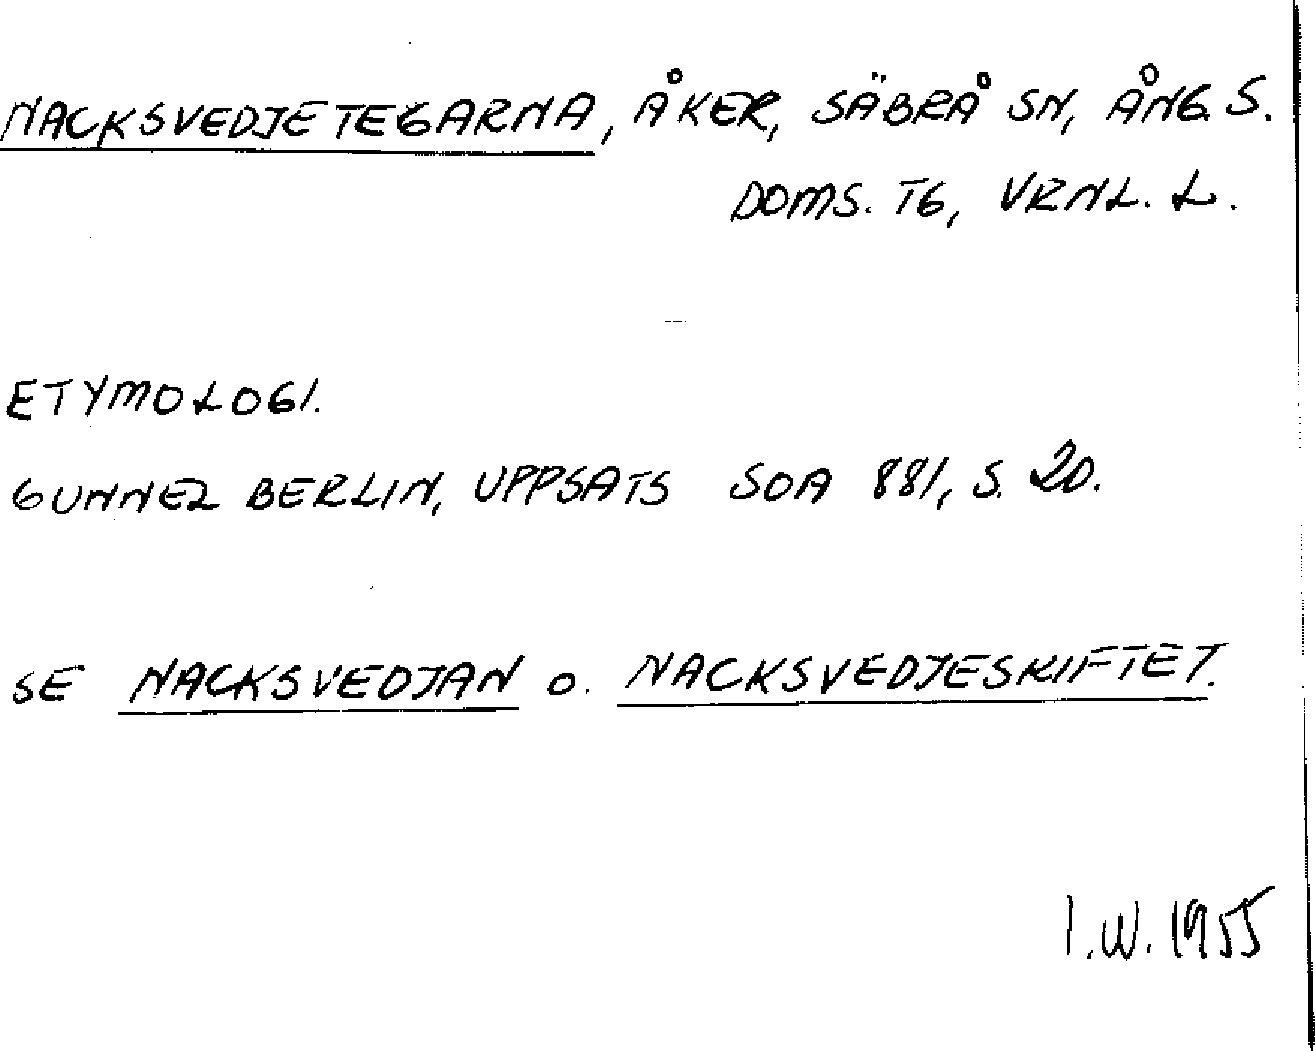 NACKSVEDJETEGARNA, ÅKER, SÄBRÅ SN, ÅNG. S.
DOMS. TG, VRNL. L.
ETYMOLOGI.
GUNNEL BERLIN, UPPSATS SOA 881, S. 20.
SE NACKSVEDJAN O. NACKSVEDJESKIFTET.
I.W. 1955